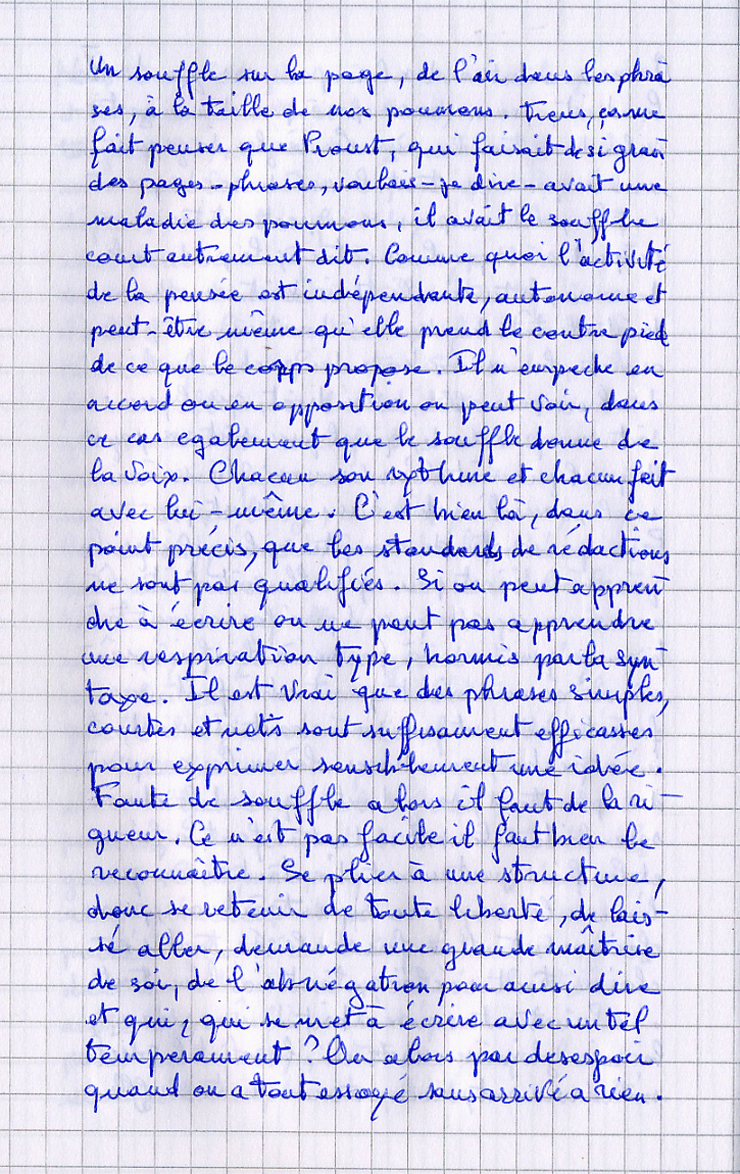 Un souffle sur la page, de l'air dans les phra
ses, à la taille de nos poumons. Tiens, ça me
fait penser que Proust, qui faisait de si gran
des pages - phrases, voulais-je dire - avait une
maladie des poumons, il avait le souffle
court autrement dit. Comme quoi l'activité
de la pensée est indépendante, autonome et
peut-être même qu'elle prend le contre pied
de ce que le corps propose. Il n'empeche en
accord ou en opposition on peut voir, dans
ce cas egalement que le souffle donne de
la voix. Chacun son rythme et chacun fait
avec lui-même. C'est bien là, dans ce
point précis, que les standards de rédactions
ne sont pas qualifiés. Si on peut appren
dre à écrire on ne peut pas apprendre
une respiration type, hormis par la syn
taxe. Il est vrai que des phrases simples,
courtes et nets sont suffisament efficasses
pour exprimer sensiblement une idée.
Faute de souffle alors il faut de la ri-
gueur. Ce n'est pas facile il faut bien le
reconnaître. Se plier à une structure,
donc se retenir de toute liberté, de lais-
sé aller, demande une grande maîtrise
de soi, de l'abnégation pour ainsi dire
et qui, qui se met à écrire avec un tel
temperament ? Ou alors par desespoir
quand on a tout essayé sans arrivé a rien.